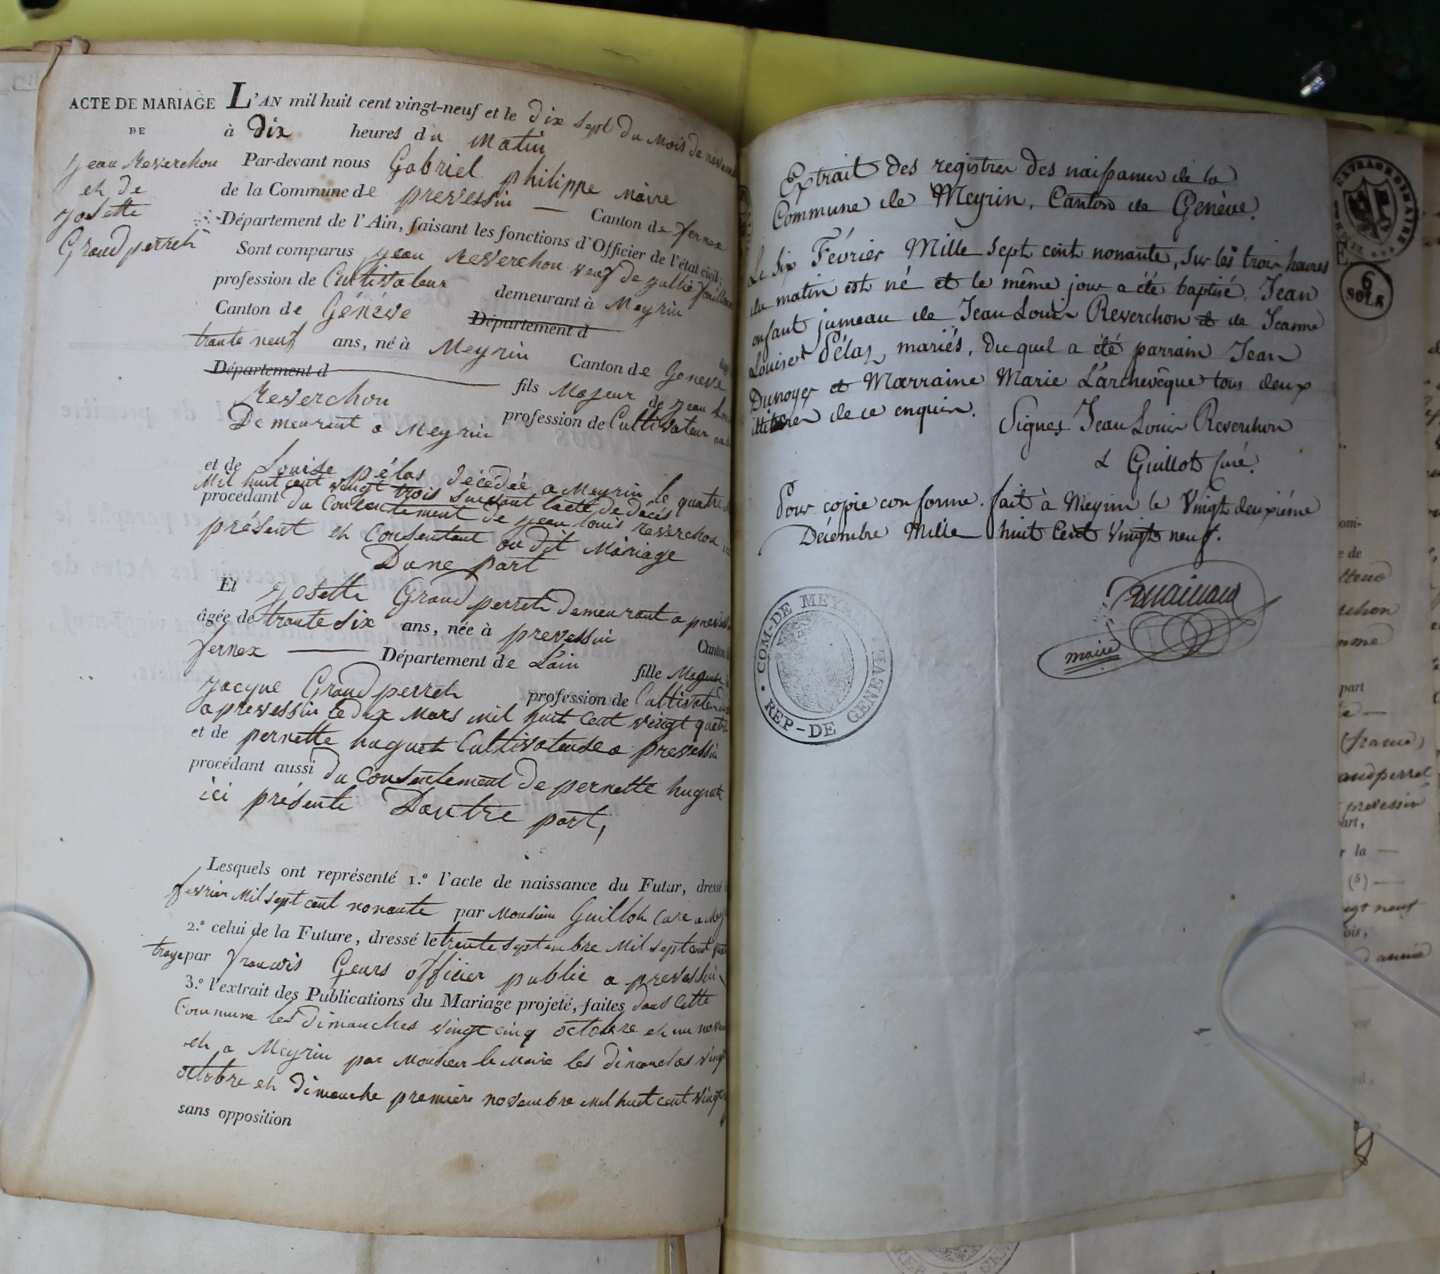 ACTE DE MARIAGE
DE
Jean Reverchon
et de
Josette
Grandperret
L'AN mil huit cent vingt-neuf et le dix sept du mois de
à Dix heures du Matin
Par-devant nous Gabriel philippe Maire
de la Commune de prevessin Canton de fernex
Département de l'Ain, faisant les fonctions d'Officier de l'état civil;
Sont comparus jean Reverchon veuf de
profession de Cultivateur demeurant à Meyrin
Canton de Généve Département d
trante neuf ans, né à Meyrin Canton de Geneve
Département d fils Majeur de jean
Reverchon profession de Cultivateur
Demeurant a Meyrin
et de Louise pélas décédée a Meyrin le quatre
Mil huit cent vingt trois suivant lacte de décès
procédant du Consentement de jean louis reverchon
présent et Consentant au dit Mariage
Dune part
Et Josette Grandperret demeurant a
âgée de trante six ans, née à prevessin Canton
fernex Département de Lain
fille Majeure
Jacque Grandperret profession de Cultivateur
a prevessin le dix Mars mil huit cent vingt quatre
et de pernette huguet Cultivateuse a prevessin
procédant aussi du Consentement de pernette huguet
ici présente Dautre part,
Lesquels ont représenté 1.º l'acte de naissance du Futur, dressé
fevrier Mil sept cent nonante par Monsieur Guillot Curé a
2.º celui de la Future, dressé le trante septembre Mil sept cent
par francois Geurs officier public a prevessin
3.º l'extrait des Publications du Mariage projeté, faites dans cette
Commune les dimanches vingt cinq octobre et un
et a Meyrin par Monsieur le Maire les dimanches vingt
octobre et dimanche premiere novembre mil huit cent vingt
sans opposition
Extrait des registres des naissances de la
Commune de Meyrin, Canton de Genève.
Le six Février Mille sept cent nonante, sur les trois heures
du matin est né et le même jour a été baptisé Jean
enfant jumeau de Jean Louis Reverchon et de Jeanne
Louise Pélas, mariés, duquel a été parrain Jean
Dunoyer et Marraine Marie L'archevêque tous deux
illiterés de ce enquis. Signés Jean Louis Reverchon
& Guillot Curé.
Pour copie conforme. fait à Meyrin le Vingt deuxième
Décembre Mille huit Cent Vingt neuf.
maire
COM-DE MEYRIN
REP-DE GENEVE
6
SOLS